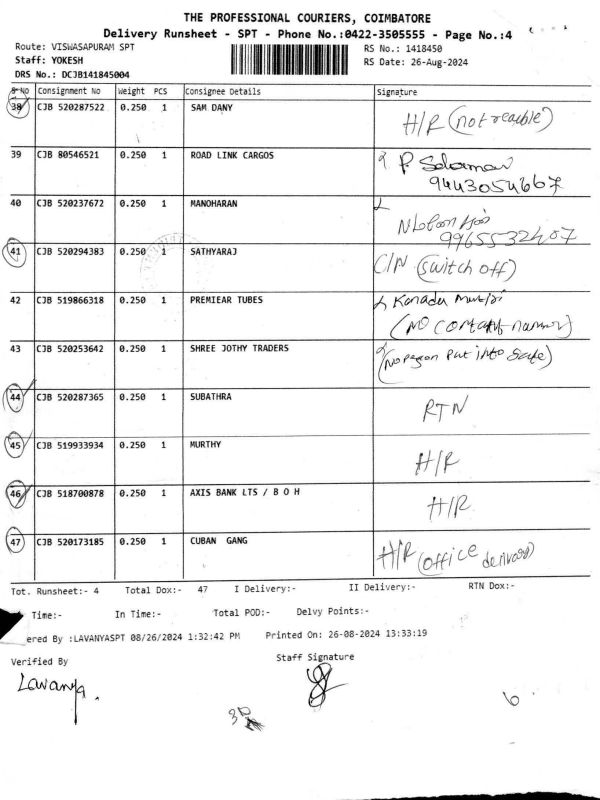 THE PROFESSIONAL COURIERS, COIMBATORE
Delivery Runsheet - SPT - Phone No.:0422-3505555 - Page No.:4
Route: VISWASAPURAM SPT RS No.: 1418450
Staff: YOKESH RS Date: 26-Aug-2024
DRS No.: DCJB141845004
S No Consignment No Weight PCS Consignee Details Signature
38 CJB 520287522 0.250 1 SAM DANY H/R (not reachble)
39 CJB 80546521 0.250 1 ROAD LINK CARGOS P. Solomon
9443054667
40 CJB 520237672 0.250 1 MANOHARAN
9965532407
41 CJB 520294383 0.250 1 SATHYARAJ C/N (switch off)
42 CJB 519866318 0.250 1 PREMIEAR TUBES
(NO contact number)
43 CJB 520253642 0.250 1 SHREE JOTHY TRADERS (No person put into safe)
44 CJB 520287365 0.250 1 SUBATHRA RTN
45 CJB 519933934 0.250 1 MURTHY H/R
46 CJB 518700878 0.250 1 AXIS BANK LTS / B O H H/R
47 CJB 520173185 0.250 1 CUBAN GANG H/R (office delivary)
Tot. Runsheet:- 4 Total Dox:- 47 I Delivery:- II Delivery:- RTN Dox:-
Time:- In Time:- Total POD:- Delvy Points:-
ered By :LAVANYASPT 08/26/2024 1:32:42 PM Printed On: 26-08-2024 13:33:19
Verified By Staff Signature
Lavanya.